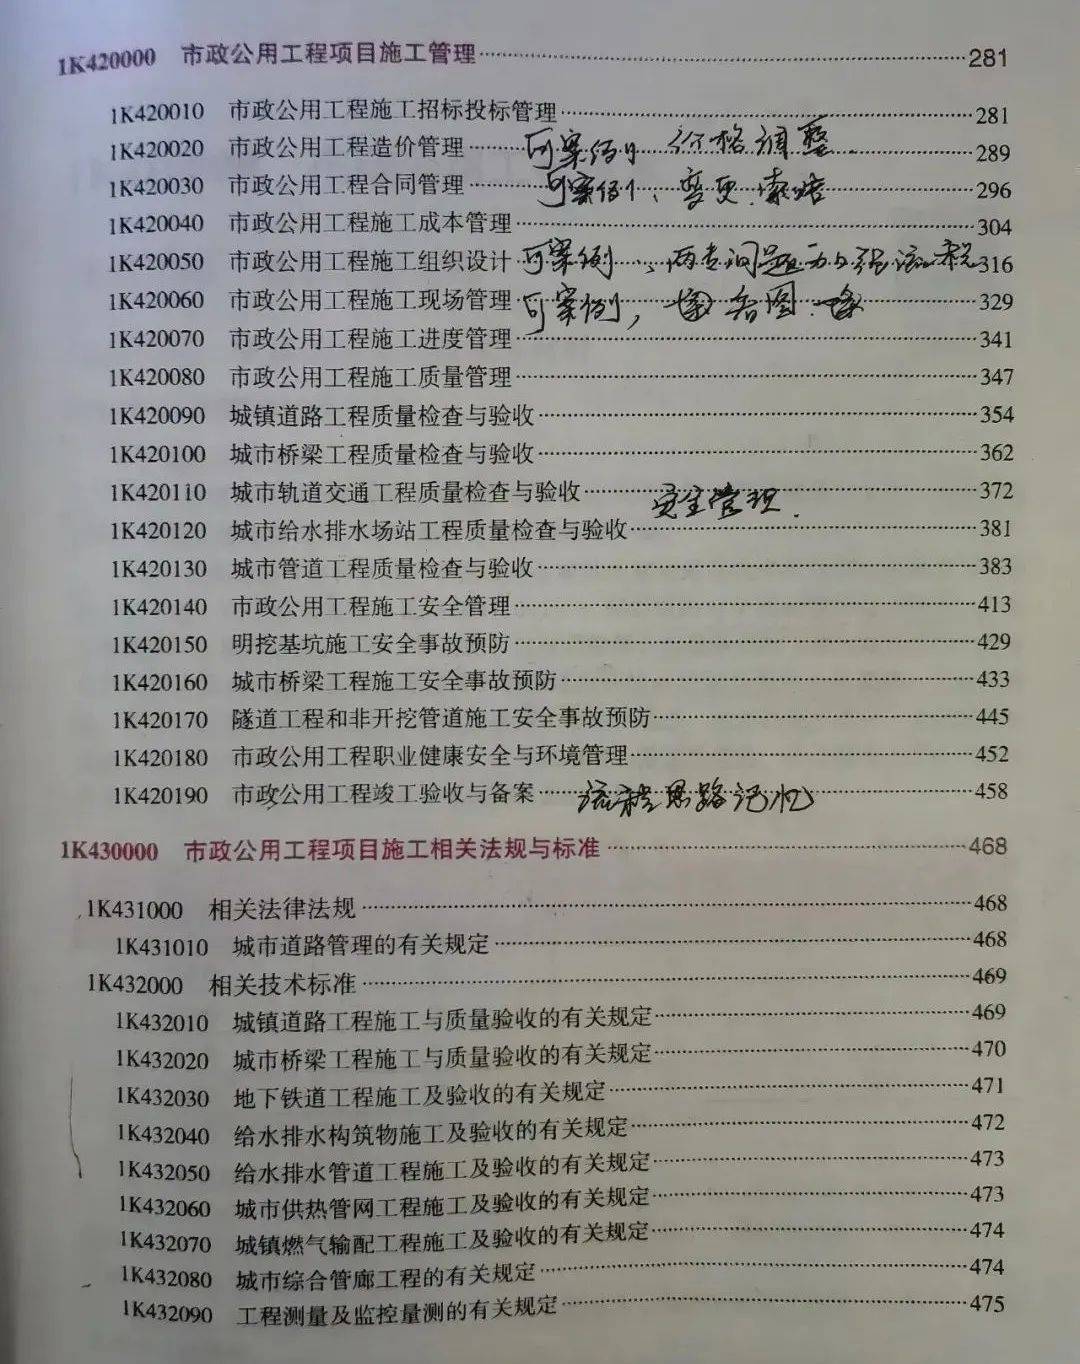 1K420000 市政公用工程项目施工管理……281
1K420010 市政公用工程施工招标投标管理……281
1K420020 市政公用工程造价管理……可案例 价格调整……289
1K420030 市政公用工程合同管理……可案例、变更.索赔……296
1K420040 市政公用工程施工成本管理……304
1K420050 市政公用工程施工组织设计 可案例……316
1K420060 市政公用工程施工现场管理 可案例，……329
1K420070 市政公用工程施工进度管理……341
1K420080 市政公用工程施工质量管理……347
1K420090 城镇道路工程质量检查与验收……354
1K420100 城市桥梁工程质量检查与验收……362
1K420110 城市轨道交通工程质量检查与验收……372
安全管理.
1K420120 城市给水排水场站工程质量检查与验收……381
1K420130 城市管道工程质量检查与验收……383
1K420140 市政公用工程施工安全管理……413
1K420150 明挖基坑施工安全事故预防……429
1K420160 城市桥梁工程施工安全事故预防……433
1K420170 隧道工程和非开挖管道施工安全事故预防……445
1K420180 市政公用工程职业健康安全与环境管理……452
1K420190 市政公用工程竣工验收与备案……流程思路记忆……458
1K430000 市政公用工程项目施工相关法规与标准……468
1K431000 相关法律法规……468
1K431010 城市道路管理的有关规定……468
1K432000 相关技术标准……469
1K432010 城镇道路工程施工与质量验收的有关规定……469
1K432020 城市桥梁工程施工与质量验收的有关规定……470
1K432030 地下铁道工程施工及验收的有关规定……471
1K432040 给水排水构筑物施工及验收的有关规定……472
1K432050 给水排水管道工程施工及验收的有关规定……473
1K432060 城市供热管网工程施工及验收的有关规定……473
1K432070 城镇燃气输配工程施工及验收的有关规定……474
1K432080 城市综合管廊工程的有关规定……474
1K432090 工程测量及监控量测的有关规定……475